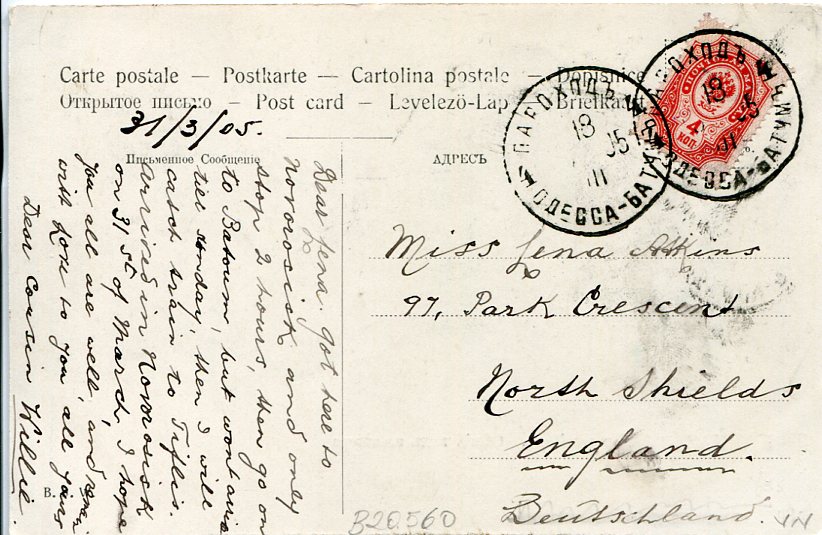 Carte postale — Postkarte — Cartolina postale — Dopisnice
Открытое письмо — Post card — Levelezö-Lap — Briefkaart
31/3/05.
Письменное Сообщеніе
АДРЕСЪ
Dear Lena. Got here to
Novorosisk and only
stop 2 hours, then go on
to Batoum, but wont arrive
till Sunday, then I will
catch train to Tiflis.
Arrived in Novorosisk
on 31st of March. I hope
you all are well, and
with love to you all Yours
Dear Cousin Willie.
Miss Lena Atkins
97, Park Crescent
North Shields
England.
Deutschland.
ПАРОХОДЪ
18
III
05
ОДЕССА-БАТУМЪ
ПАРОХОДЪ
18
III
05
ОДЕССА-БАТУМЪ
4
КОП.
B.
B20560
VN